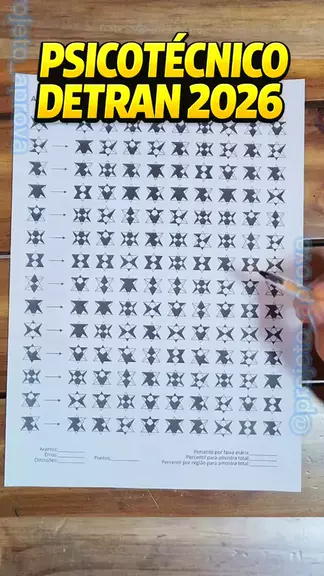 PSICOTÉCNICO
DETRAN 2026
Acertos:
Erros:
Omissões:
Pontos:
Percentil por faixa etária:
Percentil para amostra total:
Percentil por região para amostra total: